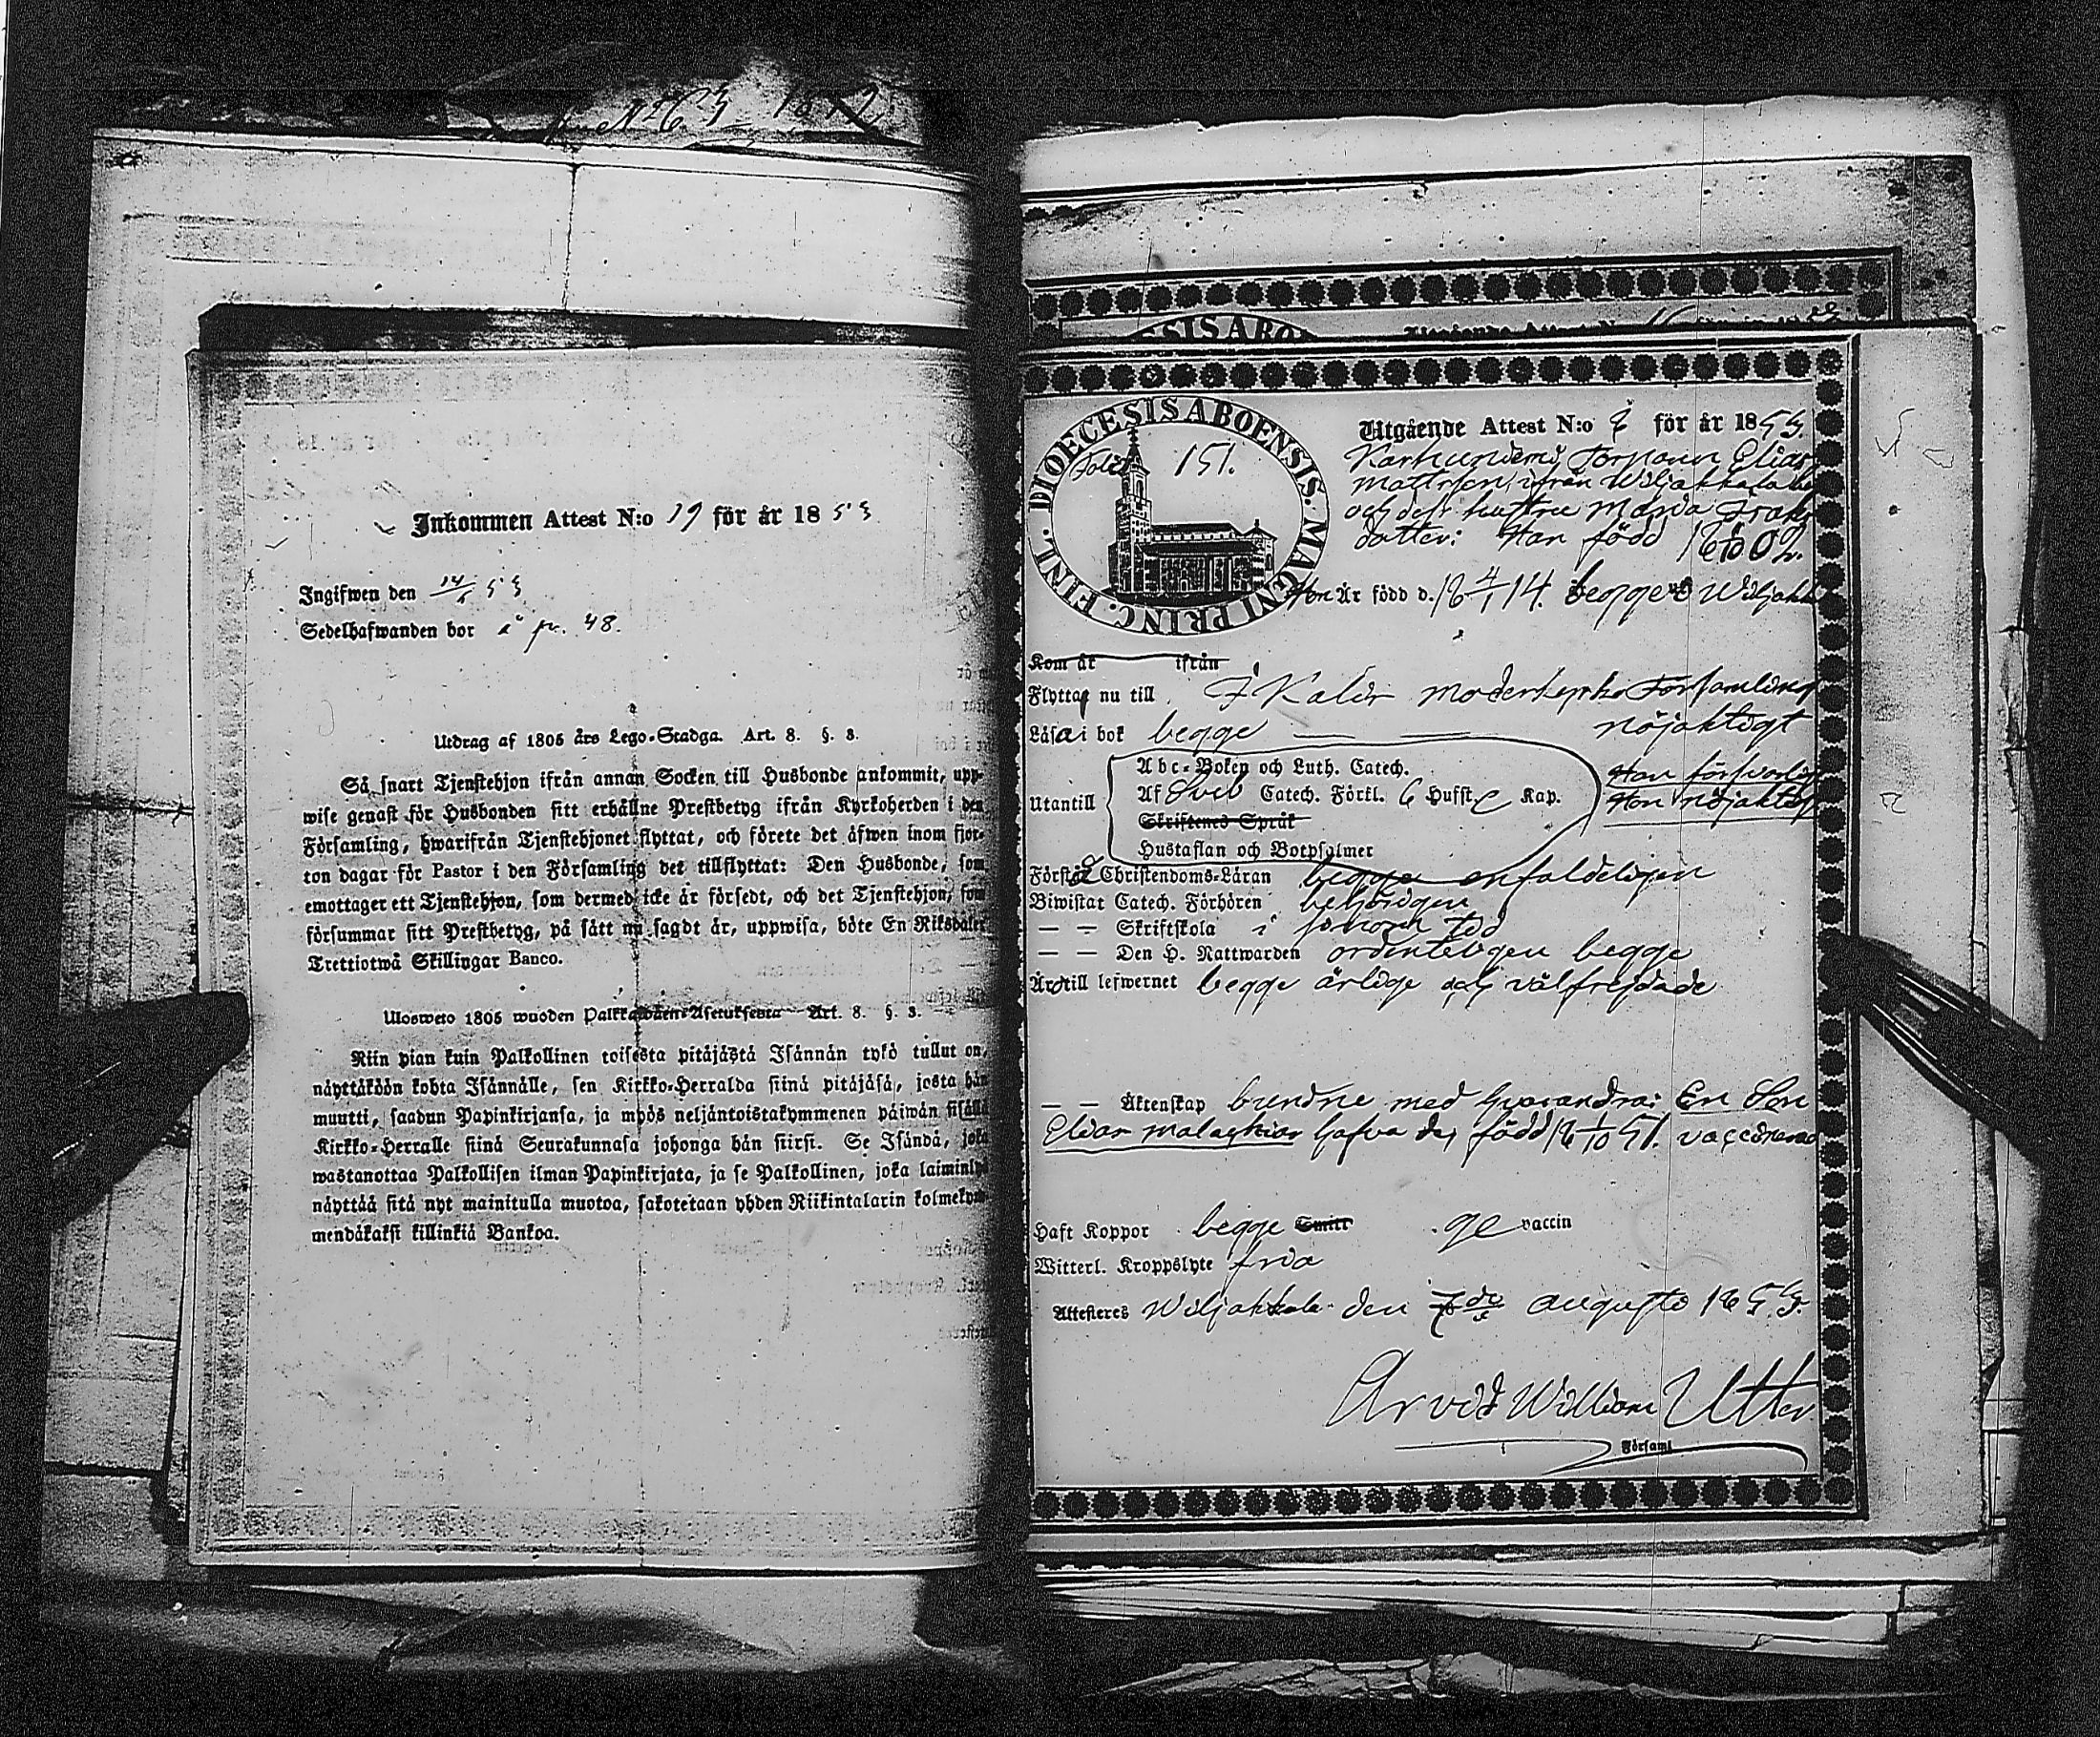 Inkommen Attest N:o 19 för år 1853
Ingifwen den 14/8 53
Sedelhafwanden bor i pr. 48.
Utdrag af 1805 års Lego-Stadga. Art. 8. §. 3.
Så snart Tjenstehjon ifrån annan Socken till Husbonde ankommit, upp-
wise genast för Husbonden sitt erhållne Prestbetyg ifrån Kyrkoherden i den
Församling, hwarifrån Tjenstehjonet flyttat, och förete det äfwen inom fjor-
ton dagar för Pastor i den Församling det tillflyttat: Den Husbonde, som
emottager ett Tjenstehjon, som dermed icke är försedt, och det Tjenstehjon, som
försummar sitt Prestbetyg, på sätt nu sagdt är, uppwisa, böte En Riksdaler
Trettiotwå Skillingar Banco.
Ulosweto 1805 wuoden Palkkawäen-Asetuksesta Art. 8. §. 3.
Niin pian kuin Palkollinen toisesta pitäjästä Isännän tykö tullut on,
näyttäköön kohta Isännälle, sen Kirkko-Herralda siinä pitäjäsä, josta hän
muutti, saadun Papinkirjansa, ja myös neljäntoistakymmenen päiwän sisällä
Kirkko-Herralle siinä Seurakunnasa johonga hän siirsi. Se Isändä, joka
wastanottaa Palkollisen ilman Papinkirjata, ja se Palkollinen, joka laiminlyö
näyttää sitä nyt mainitulla muotoa, sakotetaan yhden Riikintalarin kolmekym-
mendäkaksi killinkiä Bankoa.
DIOECESIS ABOENSIS. MAGNI PRINC. FINL.
Folio 151.
Utgående Attest N:o för år 1853.
Torparen Elias
Mattsson ifrån Wiljakkala
och dess hustru Maria
dotter: Han född 1802.
Hon Är född d. 18 4/1 14. begge i Wiljakk
Kom år ifrån
Flytta nu till Kalir moderkyrko Församling
Läsa i bok begge nöjaktigt
Abc-Boken och Luth. Catech. Han försvarlig
Utantill Af Sveb Catech. Förkl. 6 Hufst. Kap. Hon nöjaktig
Skriftenes Språk
Hustaflan och Botpsalmer
Förstå Christendoms-Läran begge enfaldeligen
Biwistat Catech. Förhören behörigen
— — Skriftskola i
— — Den H. Nattwarden ordenteligen begge
Äro till lefwernet begge ärlige och välfrejdade
— — Äktenskap bundne med hvarandra: En Son
Elias Malachias hafva de, född 18 1/10 51. vaccinerad
Haft Koppor begge Smitt ge vaccin
Witterl. Kroppslyte fria
Attesteres Wiljakkala den augusti 1853.
Arvid William Utter
Församl